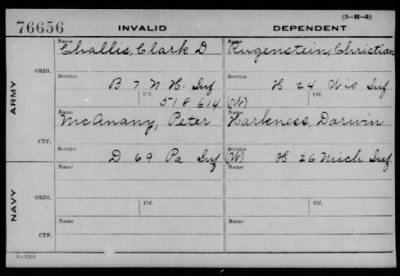 (3-H-3)
76656 INVALID DEPENDENT
Name Name
Challis, Clark D Rugenstein, Christian
ORIG.
Service Service
B 7 N.H. Inf H 24 Wis Inf
Ctf. Ctf.
518614 (W)
ARMY
Name Name
McAnany, Peter Harkness, Darwin
CTF.
Service Service
D 69 Pa Inf (W) H 26 Mich Inf
Name Name
ORIG.
NAVY
Ctf. Ctf.
Name Name
CTF.